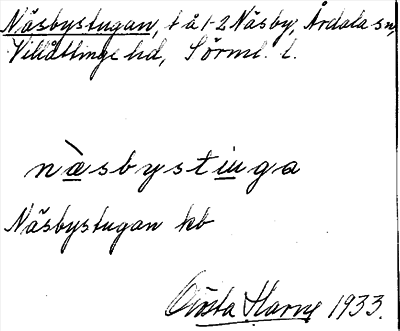 Näsbystugan, t å 1-2 Näsby, Årdala sn,
Villåttinge hd, Sörml. l.
næ̀sbystɯga
Näsbystugan kb
Gösta Harne 1933.